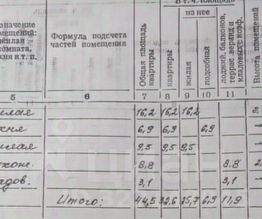 в т. ч. площадь
значение
помещений:
жилая
комната,
кухня и т. п.
Формула подсчета
частей помещения
Общая площадь
квартиры
квартиры
из нее
жилая
подсобная
лоджий, балконов,
террас, веранд и
кладовых с коэф.
Высота помещений
5 6 7 8 9 10 11
16,2 16,2 16,2
6,9 6,9 6,9
9,5 9,5 9,5
8,8 8,8
3,1 3,1
Итого: 44,5 32,6 25,7 6,9 11,9